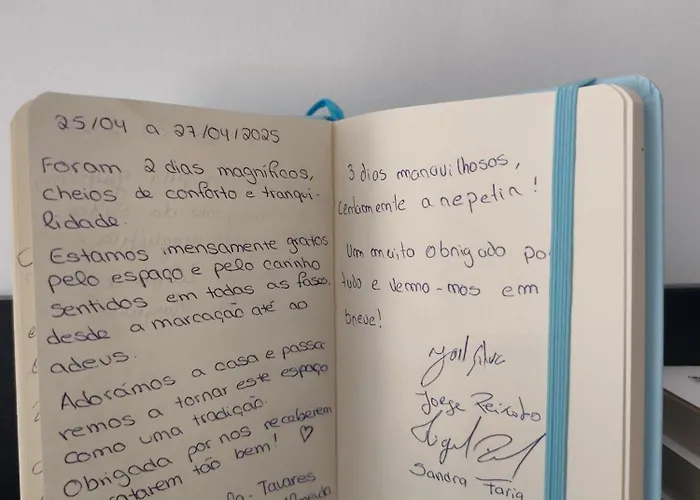 25/04 a 27/04/2025
Foram 2 dias magníficos,
cheios de conforto e tranqui-
lidade.
Estamos imensamente gratos
pelo espaço e pelo carinho
sentidos em todas as fases,
desde a marcação até ao
adeus.
Adorámos a casa e passa-
remos a tornar este espaço
como uma tradição.
Obrigada por nos receberem
tratarem tão bem! ♡
Tavares
3 dias maravilhosos,
certamente a repetir!
Um muito obrigado po
tudo e vermo-mos em
breve!
Silva
Jorge Peixoto
Sandra Faria